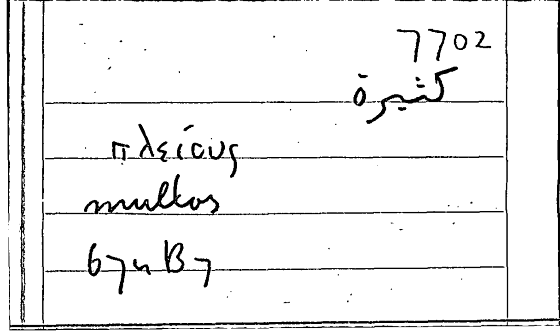 7702
كثيرة
πλείους
multos
67uB7